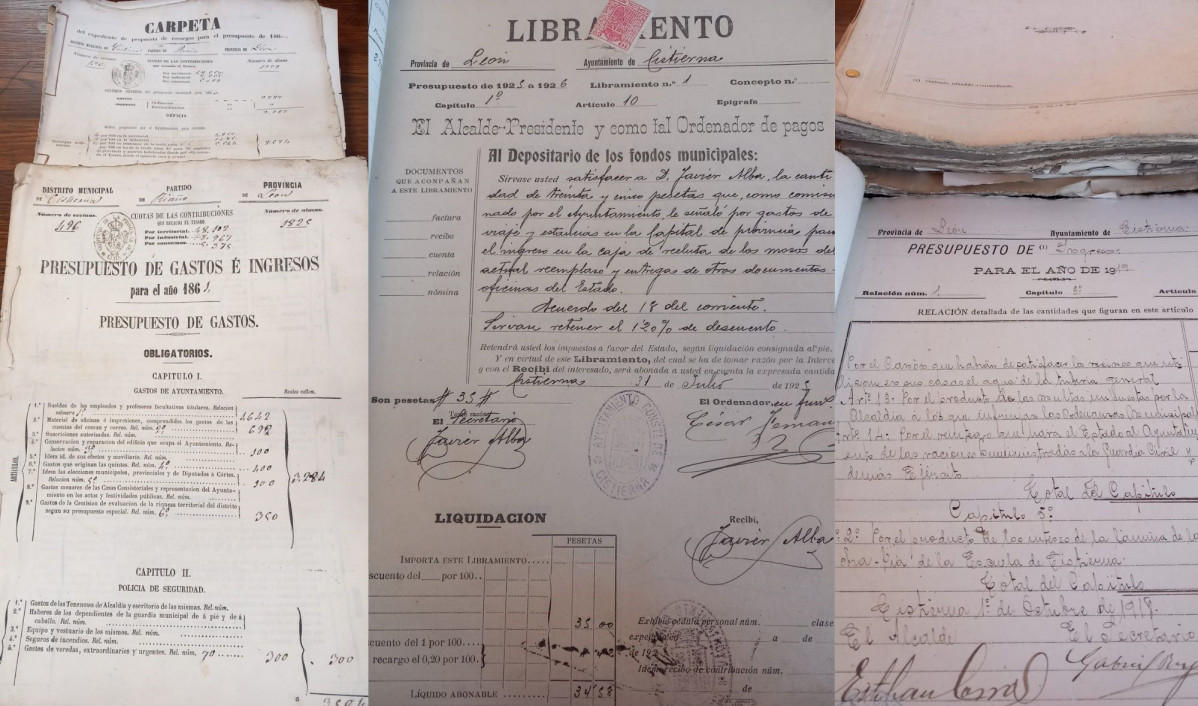 CARPETA
del expediente de propuesta de recargos para el presupuesto de 186
DISTRITO MUNICIPAL PARTIDO PROVINCIA
CUOTAS DE LAS CONTRIBUCIONES
DÉFICIT
DISTRITO MUNICIPAL
DE Cistierna
PARTIDO
DE Riaño
PROVINCIA
DE León
Número de vecinos.
496
CUOTAS DE LAS CONTRIBUCIONES
QUE RECAUDA EL TESORO.
Por territorial.
Por industrial.
Por consumos.
Número de almas.
PRESUPUESTO DE GASTOS É INGRESOS
para el año 186
PRESUPUESTO DE GASTOS.
OBLIGATORIOS.
CAPITULO I.
GASTOS DE AYUNTAMIENTO.
Reales vellon.
ARTICULOS.
1.° Sueldos de los empleados y profesores facultativos titulares. Relacion
número 1°
2.° Material de oficinas é impresiones, comprendidos los gastos de las
cuentas del censo y correo. Rel. núm. 2° 692
3.° Suscriciones autorizadas. Rel. núm.
4.° Conservacion y reparacion del edificio que ocupa el Ayuntamiento. Re-
lacion núm. 3° 300
5.° Idem id. de sus efectos y moviliario. Rel. núm.
6.° Gastos que originan las quintas. Rel. núm. 4° 400
7.° Idem las elecciones municipales, provinciales y de Diputados á Córtes.
Relacion núm. 5° 300
8.° Gastos menores de las Casas Consistoriales y representacion del Ayunta-
miento en los actos y festividades públicas. Rel. núm.
9.° Gastos de la Comision de evaluacion de la riqueza territorial del distrito
segun su presupuesto especial. Rel. núm. 6° 350
CAPITULO II.
POLICIA DE SEGURIDAD.
1.° Gastos de las Tenencias de Alcaldía y escritorio de las mismas. Rel. núm.
2.° Haberes de los dependientes de la guardia municipal de á pié y de á
caballo. Rel. núm.
3.° Equipo y vestuario de los mismos. Rel. núm.
4.° Seguros de incendios. Rel. núm.
5.° Gastos de veredas, extraordinarios y urgentes. Rel. núm. 70 300 300
LIBRAMIENTO
Provincia de León Ayuntamiento de Cistierna
Presupuesto de 1925 a 1926 Libramiento n.° 1 Concepto n.°
Capítulo 1° Artículo 10 Epígrafe
El Alcalde-Presidente y como tal Ordenador de pagos
Al Depositario de los fondos municipales:
DOCUMENTOS
QUE ACOMPAÑAN
A ESTE LIBRAMIENTO
factura
recibo
cuenta
relación
nómina
Sírvase usted satisfacer a D. Javier Alba, la canti
dad de treinta y cinco pesetas que, como comisio
nado por el Ayuntamiento le señaló por gastos de
viaje y estancias en la Capital de provincia para
el ingreso en la caja de recluta de los mozos del
actual reemplazo y entregas de otros documentos
oficinas del Estado.
Acuerdo del 18 del corriente.
Sirvan retener el 1'20% de descuento.
Retendrá usted los impuestos a favor del Estado, según liquidación consignada al pie.
Y en virtud de este Libramiento, del cual se ha de tomar razón por la Interve
y con el Recibí del interesado, será abonada a usted en cuenta la expresada cantida
Cistierna 31 de Julio de 192
Son pesetas # 35 #
El Ordenador,
El Secretario
Javier Alba
César
AYUNTAMIENTO CONSTITUC. DE CISTIERNA
LIQUIDACION
Recibí,
Javier Alba
PESETAS
IMPORTA ESTE LIBRAMIENTO
scuento del por 100
35 00
cuento del 1 por 100
recargo el 0,20 por 100
LÍQUIDO ABONABLE 34 58
Exhibe cédula personal núm. clase
expedida a de
de 192
Idem recibo de contribución núm.
de
Provincia de León Ayuntamiento de Cistierna
PRESUPUESTO DE (1) Ingresos
PARA EL AÑO DE 1919
Relación núm. 1 Capítulo 3° Artículo
RELACIÓN detallada de las cantidades que figuran en este artículo
Por el Canón que habrán de satisfacer los vecinos que uti
licen en sus casas el agua de la tubería general
Art° 13. Por el producto de las multas impuestas por la
Alcaldía á los que infrinjan las Ordenanzas Municipal
Art° 14. Por el reintegro que hará el Estado al Ayuntami
ento de las raciones suministradas a la Guardia Civil y
demás Ejército
Total del Capítulo
Capítulo 5°
2° Por el producto de los interes de la lámina de la
de la Escuela de Cistierna
Total del Capítulo
Cistierna 1° de Octubre de 1918.
El Alcalde El Secretario
Esteban Gabriel